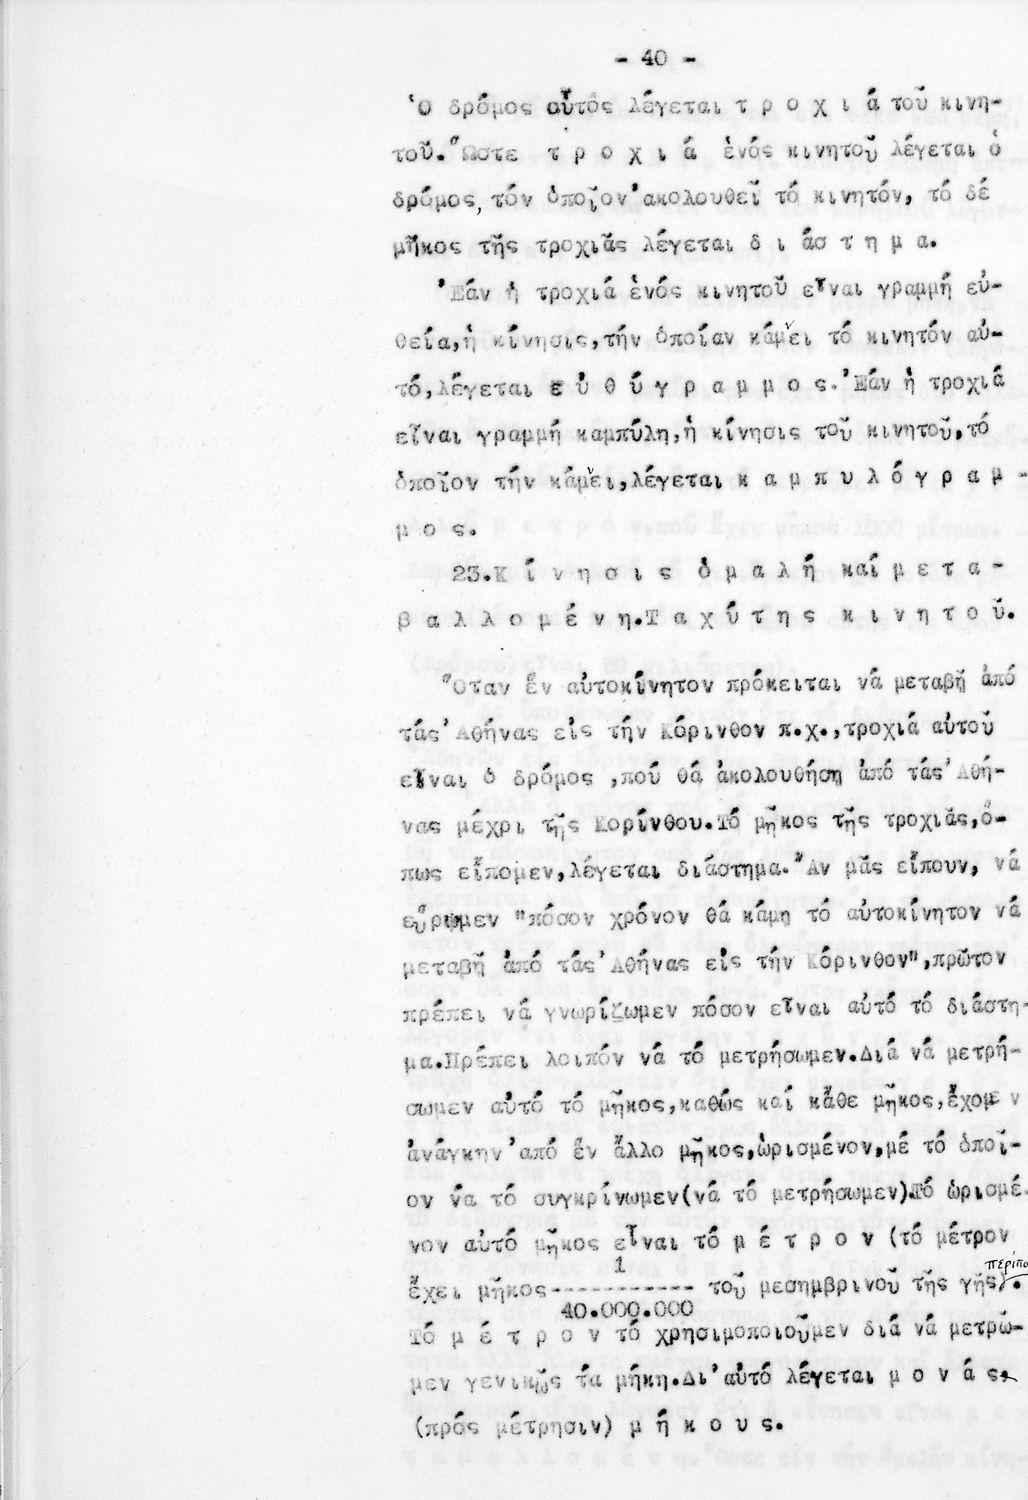 - 40 -
Ὁ δρόμος αὐτός λέγεται τ ρ ο χ ι ά τοῦ κινη-
τοῦ. Ὥστε τ ρ ο χ ι ά ἑνός κινητοῦ λέγεται ὁ
δρόμος, τόν ὁποῖον ἀκολουθεῖ τό κινητόν, τό δέ
μῆκος τῆς τροχιᾶς λέγεται δ ι ά σ τ η μ α.
Ἐάν ἡ τροχιά ἑνός κινητοῦ εἶναι γραμμή εὐ-
θεία, ἡ κίνησις, τήν ὁποίαν κάμνει τό κινητόν αὐ-
τό, λέγεται ε ὐ θ ύ γ ρ α μ μ ο ς. Ἐάν ἡ τροχιά
εἶναι γραμμή καμπύλη, ἡ κίνησις τοῦ κινητοῦ, τό
ὁποῖον τήν κάμνει, λέγεται κ α μ π υ λ ό γ ρ α μ -
μ ο ς.
23. Κ ί ν η σ ι ς ὁ μ α λ ή καί μ ε τ α -
β α λ λ ο μ έ ν η. Τ α χ ύ τ η ς κ ι ν η τ ο ῦ.
Ὅταν ἕν αὐτοκίνητον πρόκειται νά μεταβῇ ἀπό
τάς Ἀθήνας εἰς τήν Κόρινθον π.χ., τροχιά αὐτοῦ
εἶναι ὁ δρόμος, πού θά ἀκολουθήσῃ ἀπό τάς Ἀθή-
νας μέχρι τῆς Κορίνθου. Τό μῆκος τῆς τροχιᾶς, ὅ-
πως εἴπομεν, λέγεται διάστημα. Ἄν μᾶς εἴπουν, νά
εὕρωμεν "πόσον χρόνον θά κάμῃ τό αὐτοκίνητον νά
μεταβῇ ἀπό τάς Ἀθήνας εἰς τήν Κόρινθον", πρῶτον
πρέπει νά γνωρίζωμεν πόσον εἶναι αὐτό τό διάστη-
μα. Πρέπει λοιπόν νά τό μετρήσωμεν. Διά νά μετρή-
σωμεν αὐτό τό μῆκος, καθώς καί κἄθε μῆκος, ἔχομεν
ἀνάγκην ἀπό ἕν ἄλλο μῆκος, ὡρισμένον, μέ τό ὁποῖ-
ον νά τό συγκρίνωμεν (νά τό μετρήσωμεν). Τό ὡρισμέ-
νον αὐτό μῆκος εἶναι τό μ έ τ ρ ο ν (τό μέτρον
περίπου
1
ἔχει μῆκος ----------- τοῦ μεσημβρινοῦ τῆς γῆς).
40.000.000
Τό μ έ τ ρ ο ν τό χρησιμοποιοῦμεν διά νά μετρῶ-
μεν γενικῶς τά μήκη. Δι' αὐτό λέγεται μ ο ν ά ς,
(πρός μέτρησιν) μ ή κ ο υ ς.